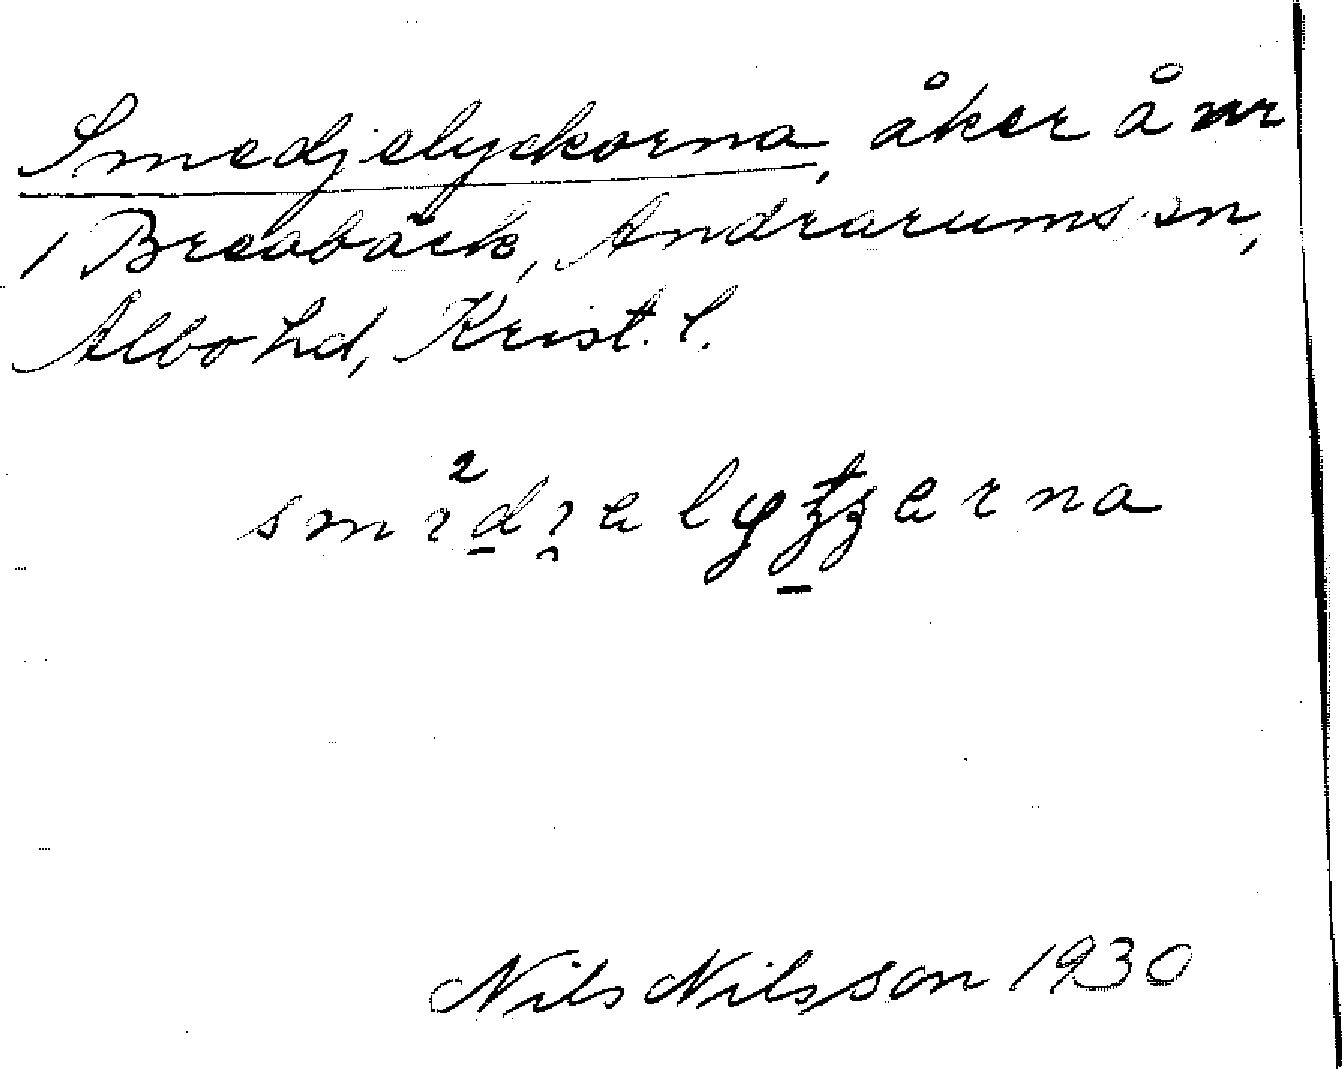 Smedjelyckorna, åker å nr
1 Breabäck, Andrarums sn,
Albo hd, Krist. l.
Nils Nilsson 1930